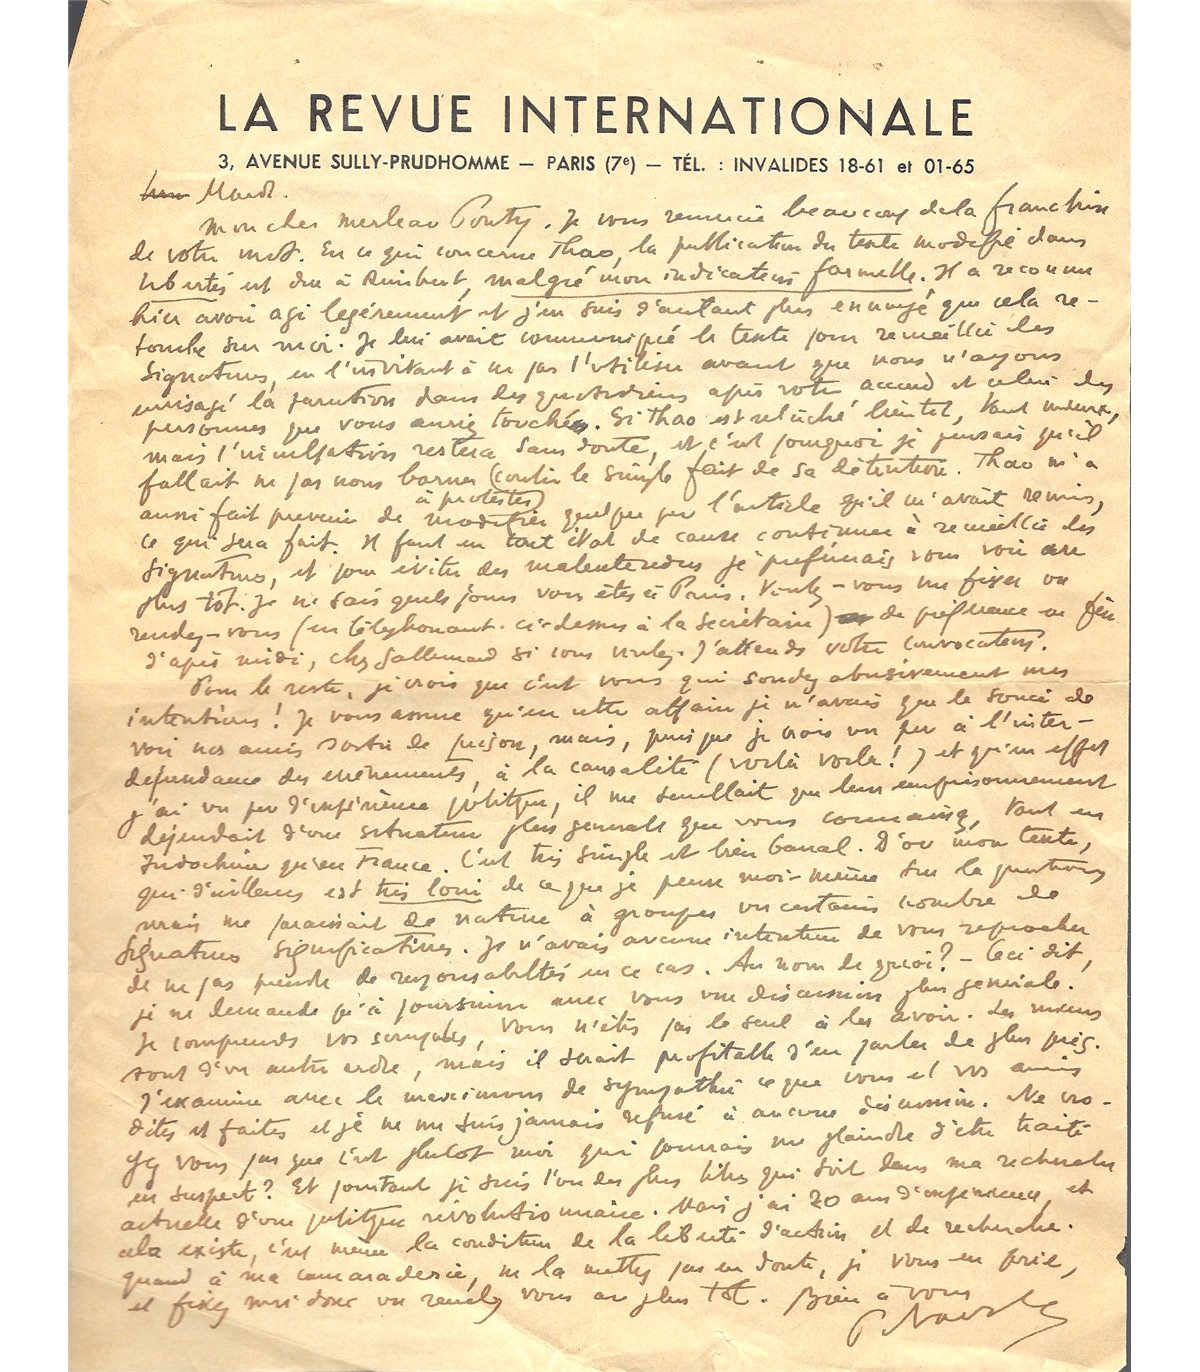 LA REVUE INTERNATIONALE
3, AVENUE SULLY-PRUDHOMME — PARIS (7e) — TÉL. : INVALIDES 18-61 et 01-65
Mardi.
Mon cher Merleau Ponty. Je vous remercie beaucoup de la franchise
de votre mot. En ce qui concerne Thao, la publication du texte modifié dans
Libertés est due à Rimbert, malgré mon indication formelle. Il a reconnu
hier avoir agi légèrement et j'en suis d'autant plus ennuyé que cela re-
tombe sur moi. Je lui avait communiqué le texte pour recueillir des
signatures, en l'invitant à ne pas l'utiliser avant que nous n'ayons
envisagé la parution dans des quotidiens après votre accord et celui des
personnes que vous auriez touchées. Si Thao est relâché bientôt, tant mieux,
mais l'inculpation restera sans doute, et c'est pourquoi je pensais qu'il
fallait ne pas nous borner (contre le simple fait de sa détention. Thao m'a
à protester)
aussi fait prévenir de modifier quelque peu l'article qu'il m'avait remis,
ce qui sera fait. Il faut en tout état de cause continuer à recueillir des
signatures, et pour éviter des malentendus je préférerais vous voir au
plus tôt. Je ne sais quels jours vous êtes à Paris. Voulez-vous me fixer un
rendez-vous (en téléphonant ci-dessus à la secrétaire) de préférence en fin
d'après midi, chez Gallimard si vous voulez. J'attends votre convocation.
Pour le reste, je crois que c'est vous qui sondez abusivement mes
intentions ! Je vous assure qu'en cette affaire je n'avais que le souci de
voir nos amis sortir de prison, mais, puisque je crois un peu à l'inter-
dépendance des évènements, à la causalité (voilà voilà !) et qu'en effet
j'ai un peu d'expérience politique, il me semblait que leur emprisonnement
dépendait d'une situation plus générale que vous connaissez, tant en
Indochine qu'en France. C'est très simple et bien banal. D'où mon texte,
qui d'ailleurs est très loin de ce que je pense moi-même sur la question
mais me paraissait de nature à grouper un certain nombre de
signatures significatives. Je n'avais aucune intention de vous reprocher
de ne pas prendre de responsabilités en ce cas. Au nom de quoi ? — Ceci dit,
je ne demande qu'à poursuivre avec vous une discussion plus générale.
Je comprends vos scrupules, vous n'êtes pas le seul à les avoir. Les miens
sont d'un autre ordre, mais il serait profitable d'en parler de plus près.
J'examine avec le maximum de sympathie ce que vous et vos amis
dites et faites et je ne me suis jamais refusé à aucune discussion. Ne cro-
yez vous pas que c'est plutôt moi qui pourrais me plaindre d'être traité
en suspect ? Et pourtant je suis l'un des plus libres qui soit dans ma recherche
actuelle d'une politique révolutionnaire. Mais j'ai 20 ans d'expérience, et
cela existe, c'est même la condition de la liberté d'action et de recherche.
quand à ma camaraderie, ne la mettez pas en doute, je vous en prie,
et fixez moi donc un rendez vous au plus tôt. Bien à vous
P. Naville